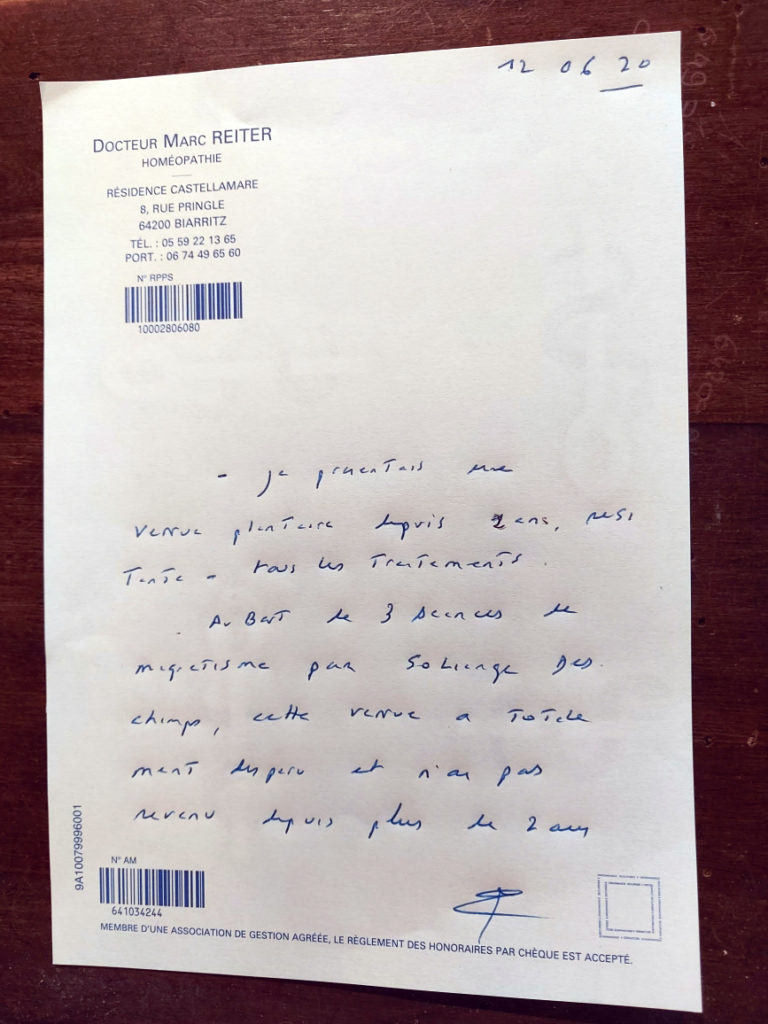 12 06 20
DOCTEUR MARC REITER
HOMÉOPATHIE
RÉSIDENCE CASTELLAMARE
8, RUE PRINGLE
64200 BIARRITZ
TÉL. : 05 59 22 13 65
PORT. : 06 74 49 65 60
N° RPPS
10002806080
- je presentais une
verrue plantaire depuis 2 ans, resi
tante - tous les traitements.
Au Bout de 3 seances de
magnetisme par Solange Des
champs, cette verrue a totale
ment disparu et n'as pas
revenu depuis plus de 2 ans
9A10079996001
N° AM
641034244
MEMBRE D'UNE ASSOCIATION DE GESTION AGRÉÉE, LE RÈGLEMENT DES HONORAIRES PAR CHÈQUE EST ACCEPTÉ.